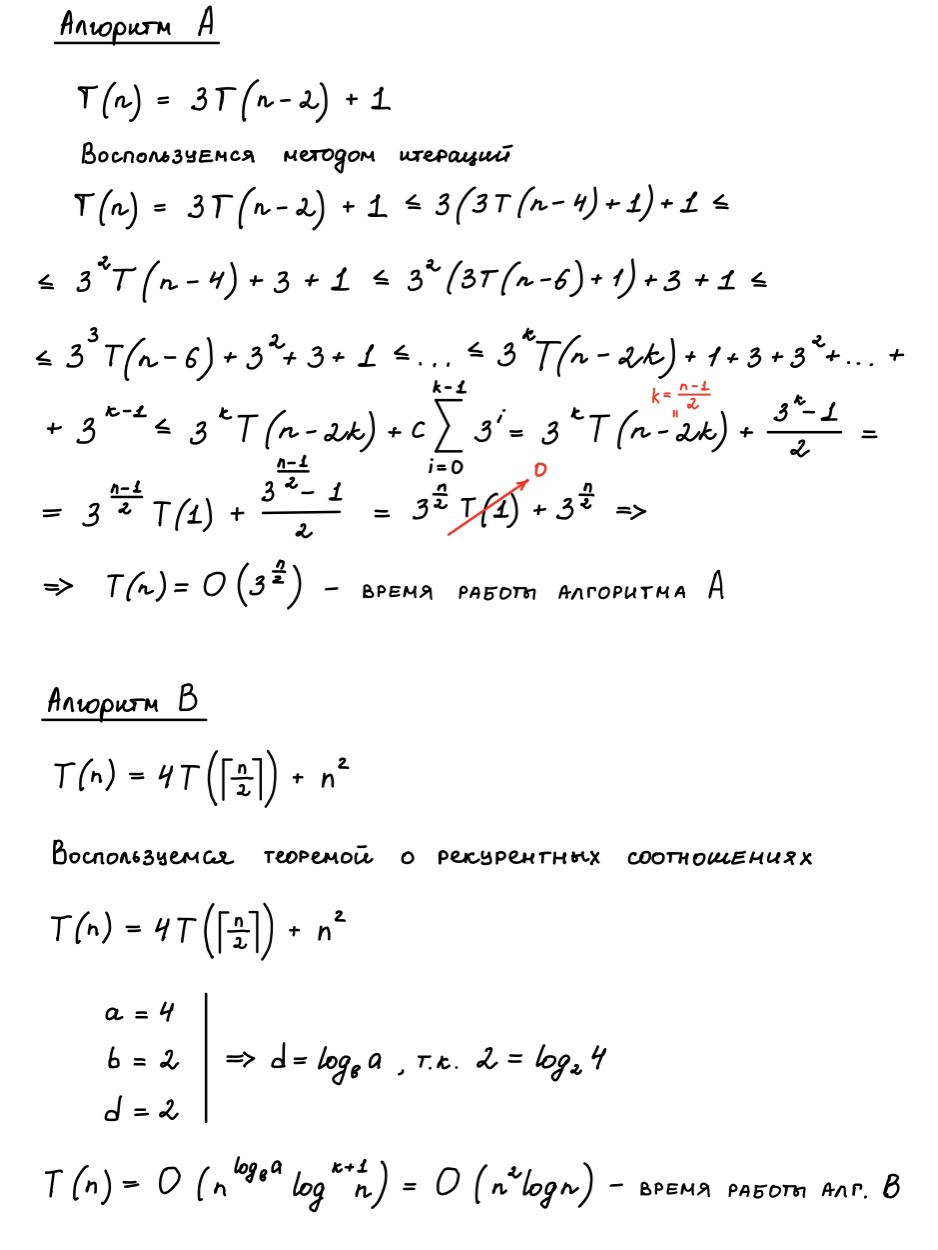 Алгоритм A
T(n) = 3T(n-2) + 1
Воспользуемся методом итераций
T(n) = 3T(n-2) + 1 ≤ 3(3T(n-4)+1)+1 ≤
≤ 3²T(n-4) + 3 + 1 ≤ 3²(3T(n-6)+1)+3+1 ≤
≤ 3³T(n-6)+3²+3+1 ≤...≤ 3^k T(n-2k)+1+3+3²+...+
+ 3^(k-1) ≤ 3^k T(n-2k) + C ∑_{i=0}^{k-1} 3^i = 3^k T(n-2k) + (3^k-1)/2 =
k = (n-1)/2
= 3^((n-1)/2) T(1) + (3^((n-1)/2) - 1)/2 = 3^(n/2) T(1) + 3^(n/2) =>
0
=> T(n) = O(3^(n/2)) - время работы алгоритма A
Алгоритм B
T(n) = 4T(⌈n/2⌉) + n²
Воспользуемся теоремой о рекурентных соотношениях
T(n) = 4T(⌈n/2⌉) + n²
a = 4
b = 2 => d = log_b a, т.к. 2 = log₂4
d = 2
T(n) = O(n^(log_b a) log^(k+1) n) = O(n² log n) - время работы алг. B